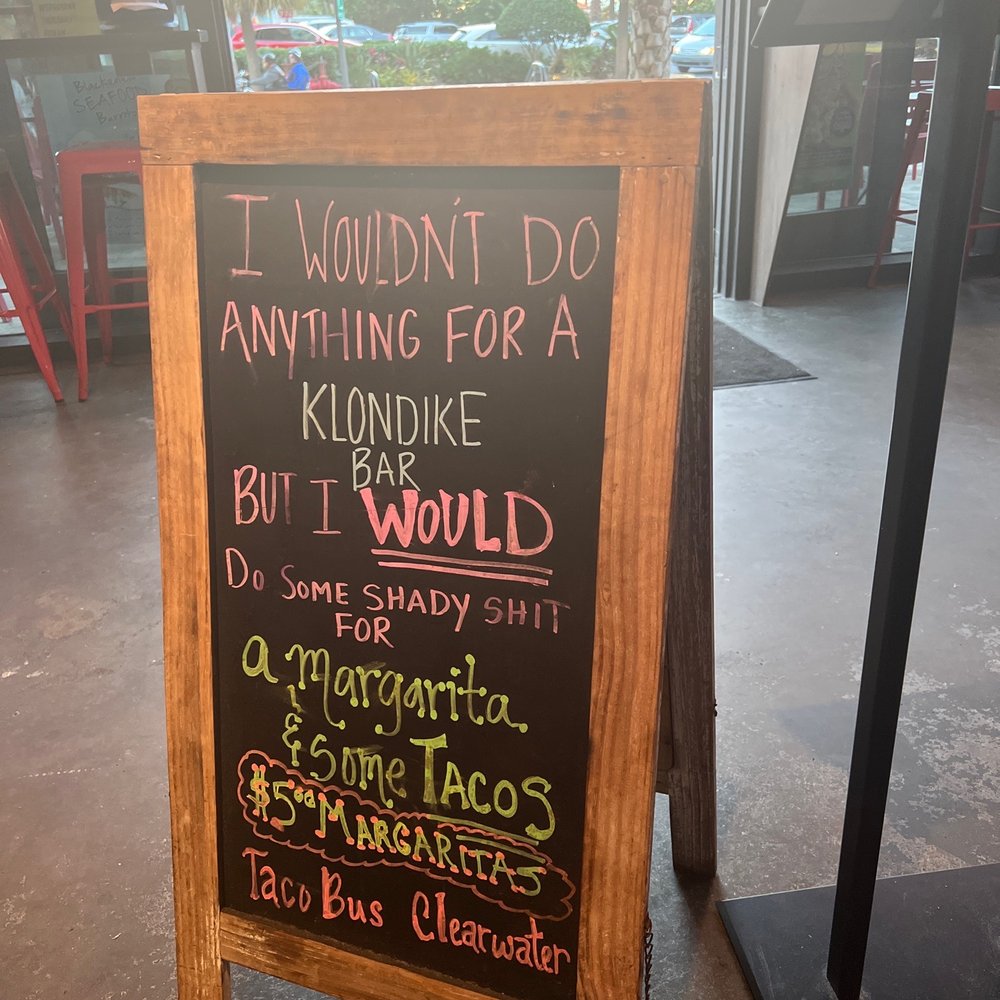 Blackened
SEAFOOD
Burrito
I WOULDN'T DO
ANYTHING FOR A
KLONDIKE
BAR
BUT I WOULD
DO SOME SHADY SHIT
FOR
a margarita
& some TACOS
$5.00 MARGARITAS
Taco Bus Clearwater